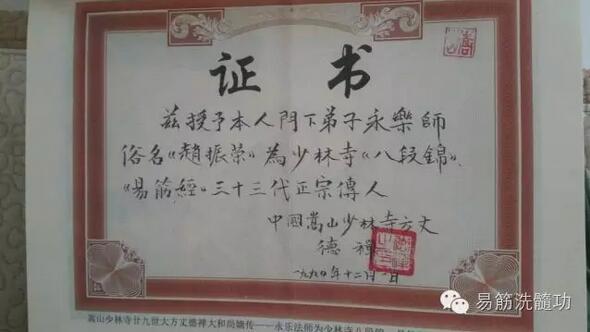 证书
兹授予本人門下弟子永樂師
俗名《趙振荣》為少林寺《八段錦》、
《易筋經》三十三代正宗傳人
中國嵩山少林寺方丈
德禪
一九九〇年十二月一日
嵩山少林寺廿九世大方丈德禅大和尚嫡传——永乐法师为少林寺八段锦
易筋洗髓功